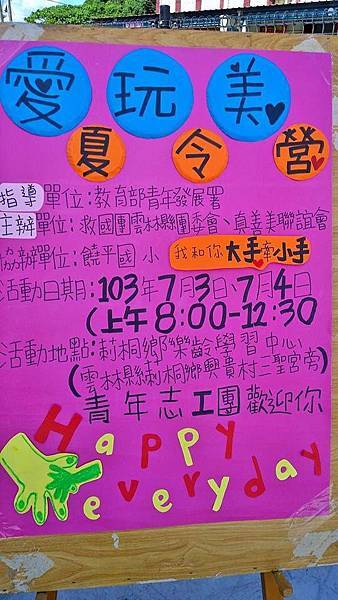 愛玩美
夏令營
指導單位:教育部青年發展署
主辦單位:救國團雲林縣團委會、真善美聯誼會
協辦單位:饒平國小 我和你大手牽小手
活動日期:103年7月3日、7月4日
(上午8:00-12:30
活動地點:莿桐鄉樂齡學習中心
(雲林縣莿桐鄉興貴村二聖宮旁)
青年志工團歡迎你
Happy
everyday